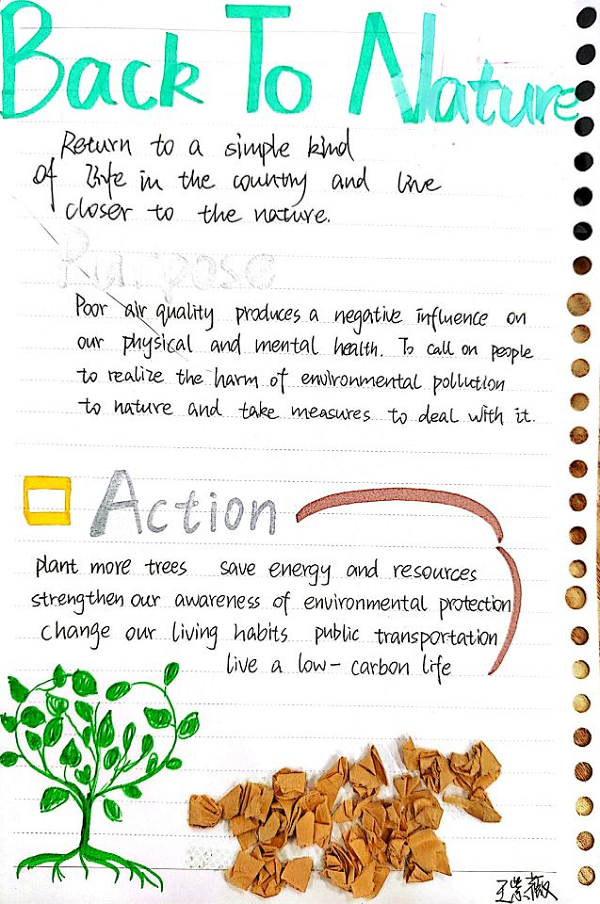 Back To Nature
Return to a simple kind
of life in the country and live
closer to the nature.
Purpose
Poor air quality produces a negative influence on
our physical and mental health. To call on people
to realize the harm of environmental pollution
to nature and take measures to deal with it.
Action
plant more trees save energy and resources
strengthen our awareness of environmental protection
change our living habits public transportation
live a low-carbon life
王紫薇